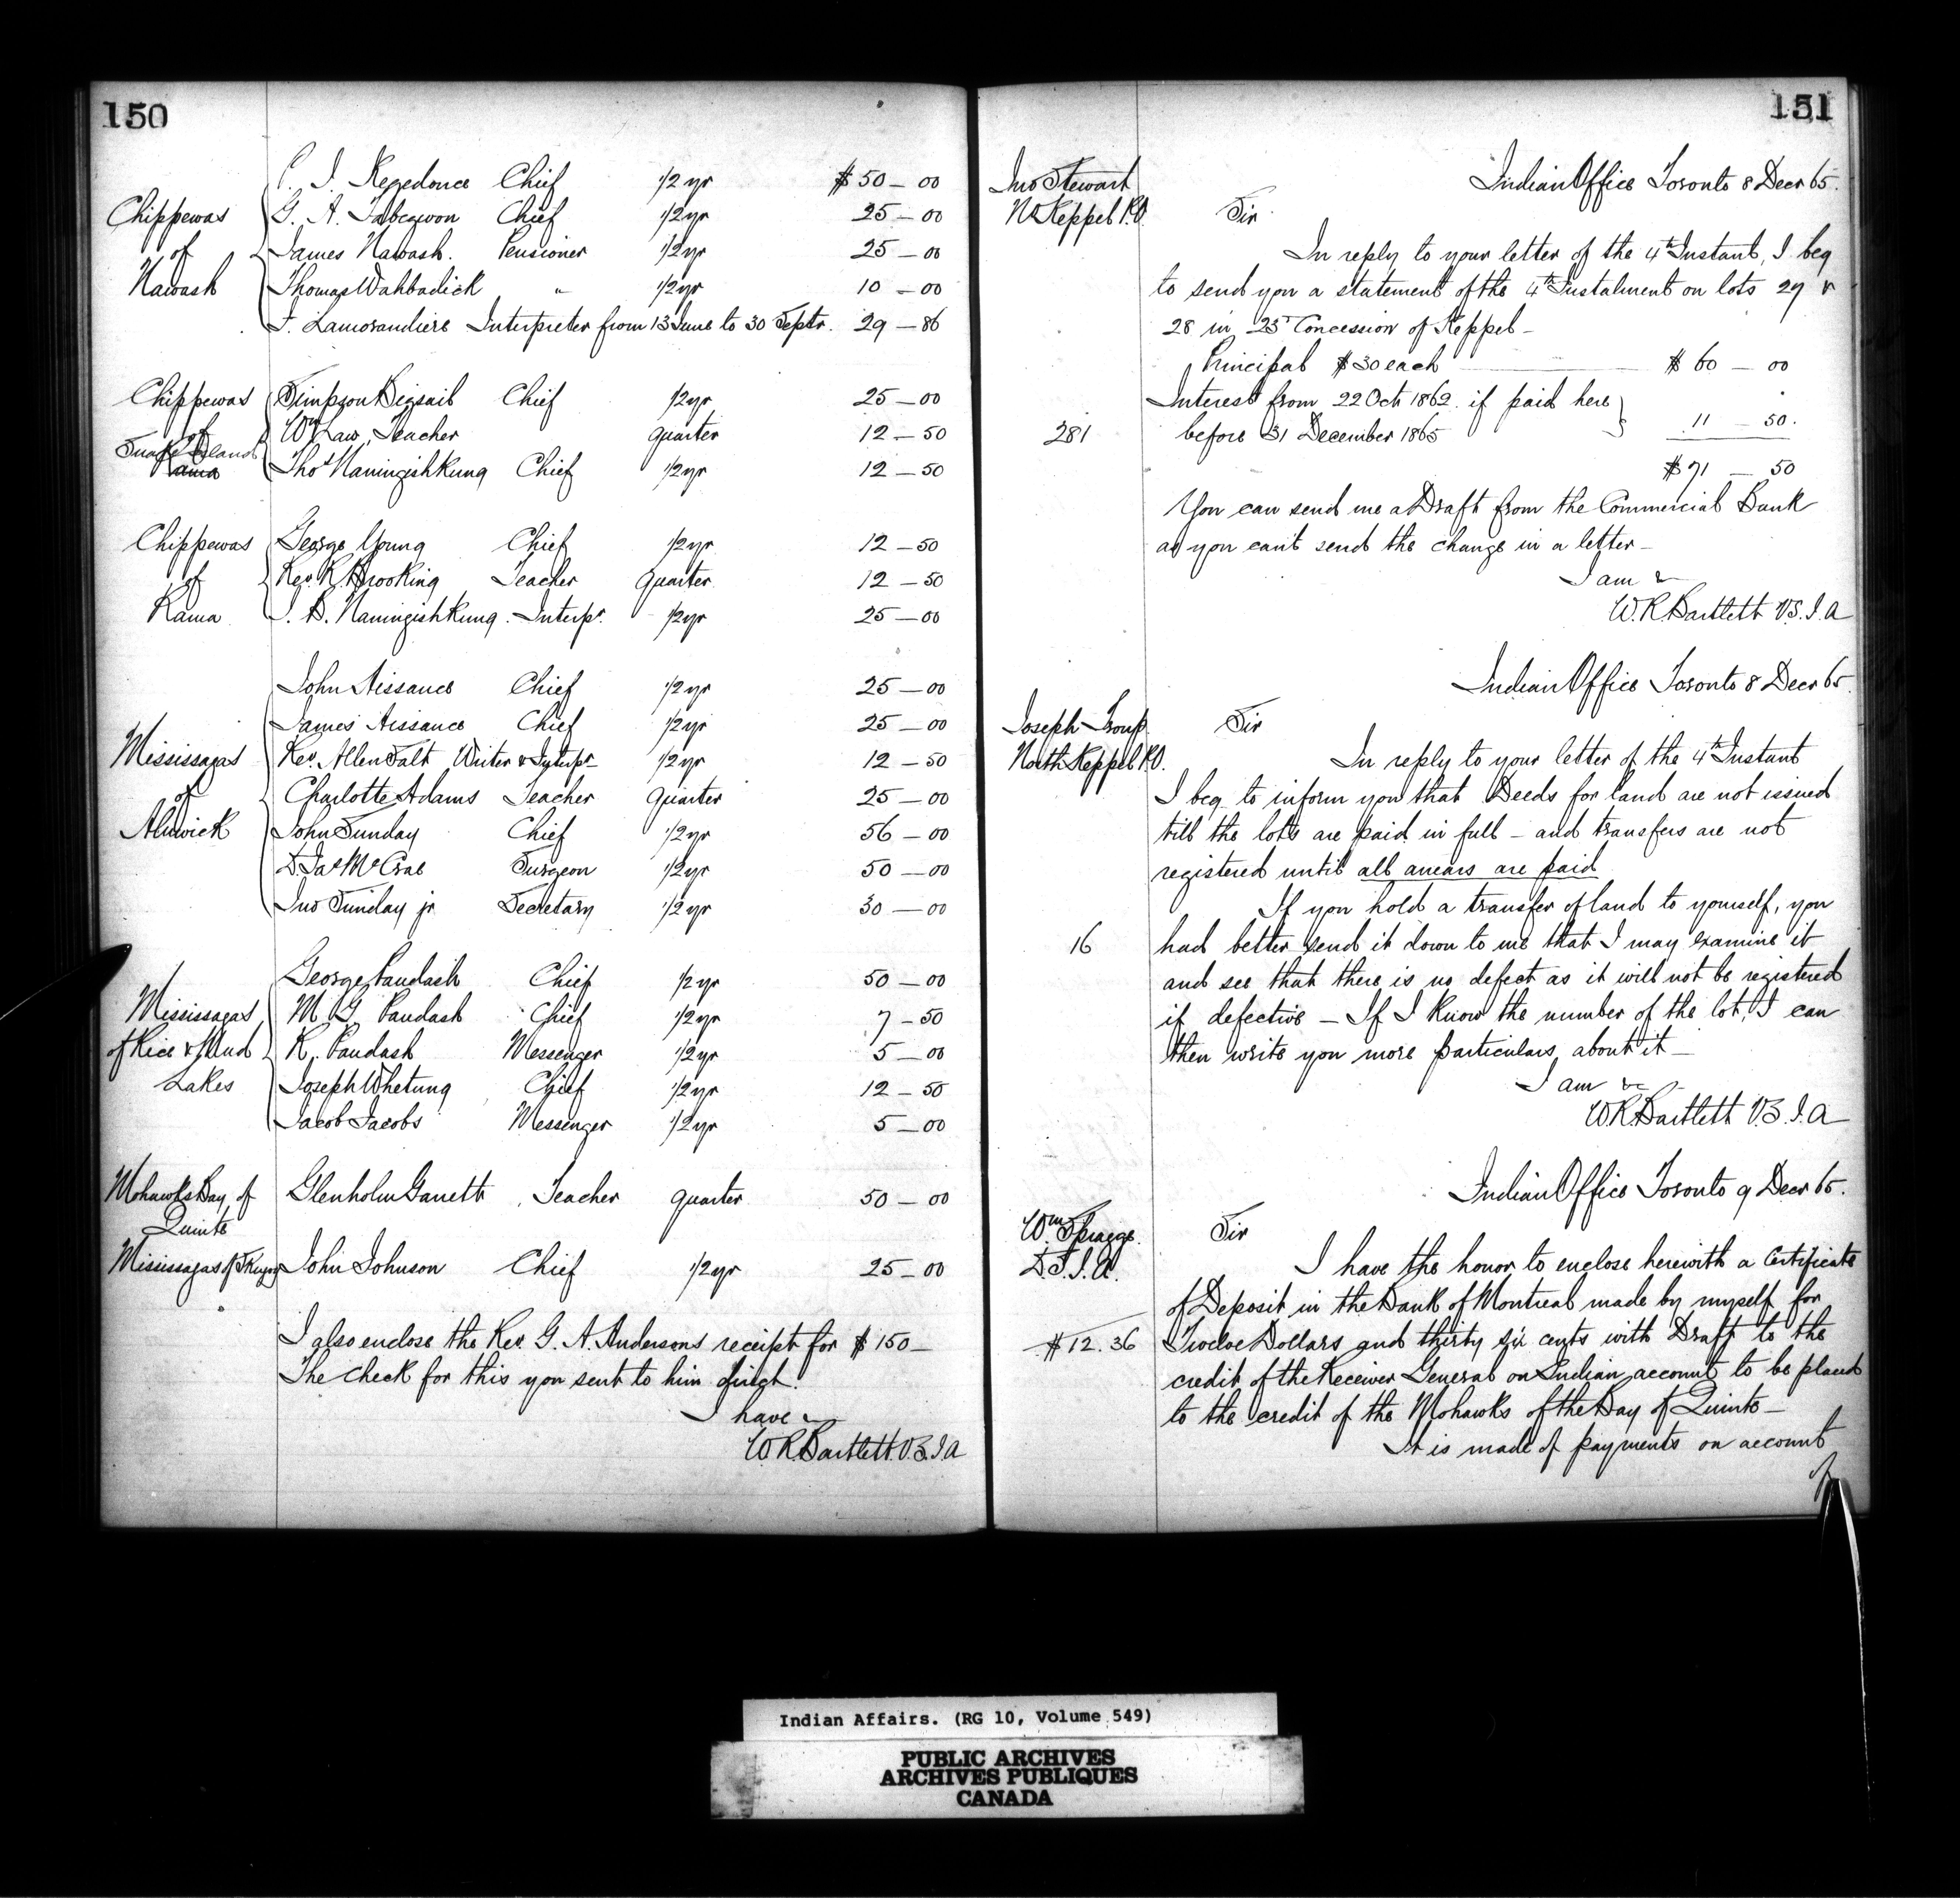 150
P. J. Kegedonce Chief 1/2 yr $ 50 – 00
Chippewas G. A. Tabegwon Chief 1/2 yr 25 – 00
of James Nawash. Pensioner 1/2 yr 25 – 00
Nawash Thomas Wahbadick " 1/2 yr 10 – 00
F. Lamorandiere Interpreter from 13 June to 30 Septr. 29 – 86
Chippewas Simpson Bigsail Chief 1/2 yr 25 – 00
of Wm Law, Teacher quarter 12 – 50
Snake Island
Rama Thos Naningishkung Chief 1/2 yr 12 – 50
Chippewas George Young Chief 1/2 yr 12 – 50
of Rev. R. Brooking Teacher quarter 12 – 50
Rama J. B. Naningishkung. Interpr. 1/2 yr 25 – 00
John Aissance Chief 1/2 yr 25 – 00
James Aissance Chief 1/2 yr 25 – 00
Mississagas Rev. Allen Salt Writer & Interpr 1/2 yr 12 – 50
of Charlotte Adams Teacher quarter 25 – 00
Alnwick John Sunday Chief 1/2 yr 56 – 00
D. Jas McCrae Surgeon 1/2 yr 50 – 00
Jno Sunday jr Secretary 1/2 yr 30 – 00
George Paudash Chief 1/2 yr 50 – 00
Mississagas M. G. Paudash Chief 1/2 yr 7 – 50
of Rice & Mud R. Paudash Messenger 1/2 yr 5 – 00
Lakes Joseph Whetung Chief 1/2 yr 12 – 50
Jacob Jacobs Messenger 1/2 yr 5 – 00
Mohawks Bay of Glenholm Garrett Teacher quarter 50 – 00
Quinte
Mississagas of Skugog John Johnson Chief 1/2 yr 25 – 00
I also enclose the Rev. G. A. Andersons receipt for $ 150 –
The check for this you sent to him direct.
I have &
W R Bartlett. V.S.I.A
151
Jno Stewart Indian Office Toronto 8 Decr 65.
N. Keppel P.O. Sir
In reply to your letter of the 4th Instant, I beg
to send you a statement of the 4th Instalment on lots 27 &
28 in 25th Concession of Keppel –
Principal $ 30 each $ 60 – 00
Interest from 22 Oct 1862 if paid here
281 before 31 December 1865 11 – 50.
$ 71 – 50
You can send me a Draft from the Commercial Bank
as you can't send the change in a letter –
I am &
W. R Bartlett V.S.I.A
Indian Office Toronto 8 Decr 65.
Joseph Troup Sir
North Keppel P.O. In reply to your letter of the 4th Instant
I beg to inform you that Deeds for land are not issued
till the lots are paid in full – and transfers are not
registered until all arrears are paid
If you hold a transfer of land to yourself, you
16 had better send it down to me that I may examine it
and see that there is no defect as it will not be registered
if defective – If I know the number of the lot, I can
then write you more particulars about it –
I am &c
W R Bartlett V.S.I.A
Indian Office Toronto 9 Decr 65.
Wm Spragge Sir
D.S.I.A. I have the honor to enclose herewith a Certificate
of Deposit in the Bank of Montreal made by myself for
$ 12. 36 Twelve Dollars and thirty six cents with Draft to the
credit of the Receiver General on Indian account to be placed
to the credit of the Mohawks of the Bay of Quinte –
It is made of payments on account
of
Indian Affairs. (RG 10, Volume 549)
PUBLIC ARCHIVES
ARCHIVES PUBLIQUES
CANADA